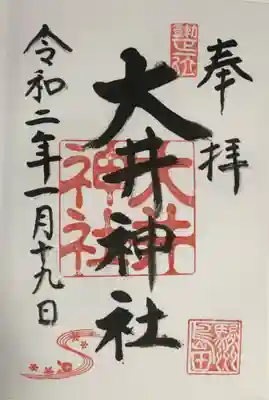 奉拝
大井神社
令和二年一月十九日
大井
神社